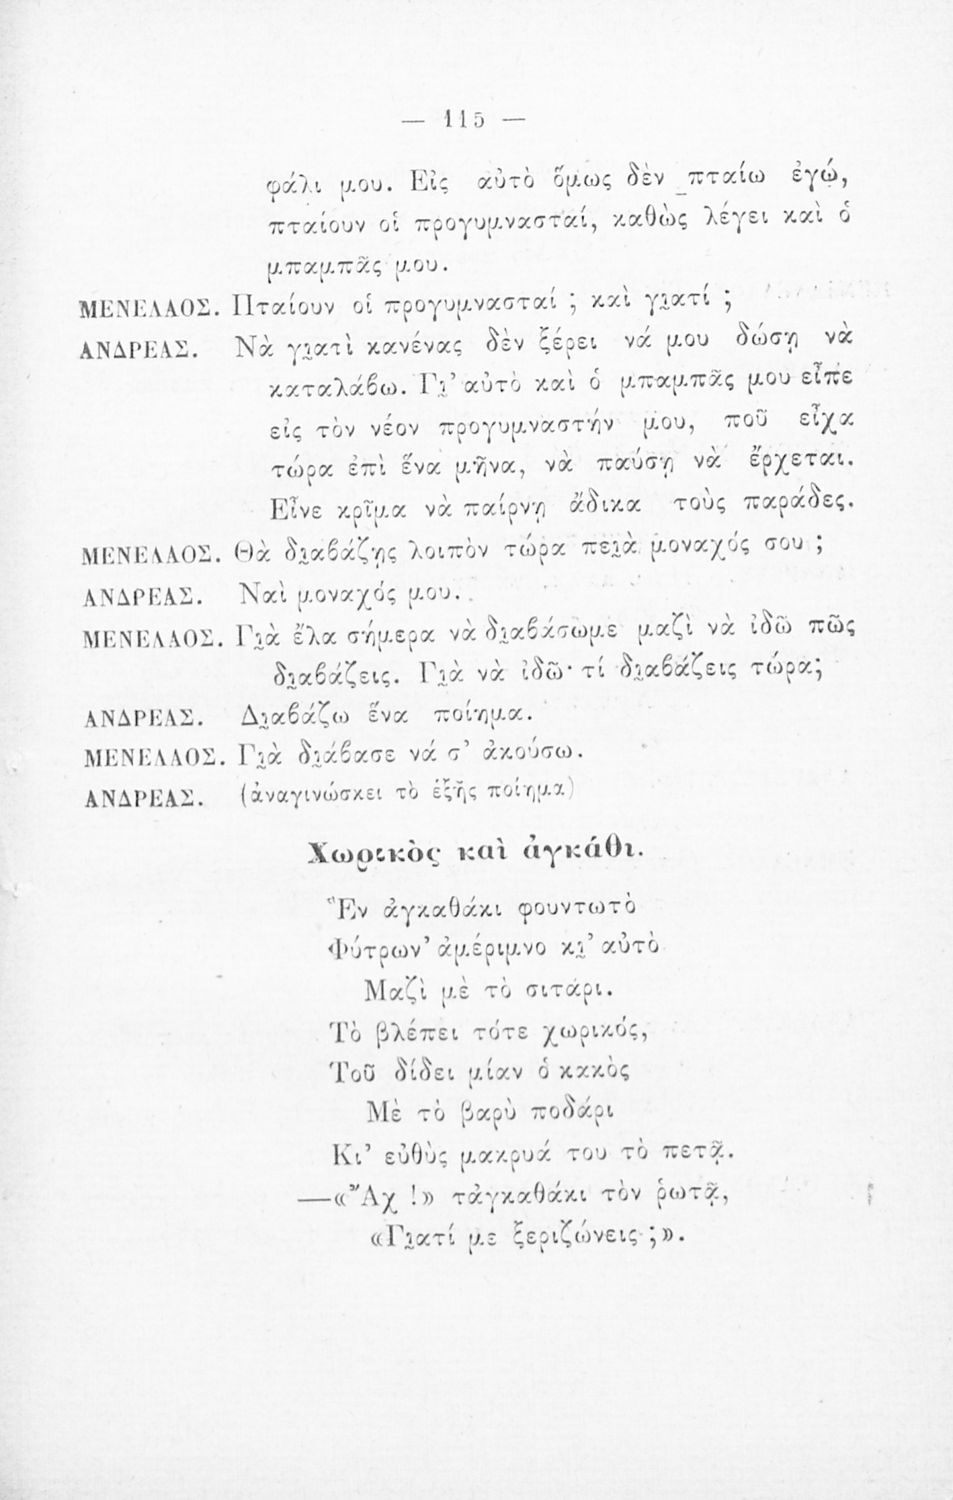 — 115 —
φάλι μου. Εἰς αὐτὸ ὅμως δὲν πταίω ἐγώ,
πταίουν οἱ προγυμνασταί, καθὼς λέγει καὶ ὁ
μπαμπᾶς μου.
ΜΕΝΕΛΑΟΣ. Πταίουν οἱ προγυμνασταί ; καὶ γι̯ατί ;
ΑΝΔΡΕΑΣ. Νὰ γι̯ατὶ κανένας δὲν ξέρει νά μου δώσῃ νὰ
καταλάβω. Γι̯’ αὐτὸ καὶ ὁ μπαμπᾶς μου εἶπε
εἰς τὸν νέον προγυμναστήν μου, ποῦ εἶχα
τώρα ἐπὶ ἕνα μῆνα, νὰ παύσῃ νὰ ἔρχεται.
Εἶνε κρῖμα νὰ παίρνῃ ἄδικα τοὺς παράδες.
ΜΕΝΕΛΑΟΣ. Θὰ δι̯αβάζῃς λοιπὸν τώρα πει̯ὰ μοναχός σου ;
ΑΝΔΡΕΑΣ. Ναὶ μοναχός μου.
ΜΕΝΕΛΑΟΣ. Γι̯ὰ ἔλα σήμερα νὰ δι̯αβάσωμε μαζὶ νὰ ἰδῶ πῶς
δι̯αβάζεις. Γι̯ὰ νὰ ἰδῶ· τί δι̯αβάζεις τώρα;
ΑΝΔΡΕΑΣ. Δι̯αβάζω ἕνα ποίημα.
ΜΕΝΕΛΑΟΣ. Γι̯ὰ δι̯άβασε νά σ’ ἀκούσω.
ΑΝΔΡΕΑΣ. (ἀναγινώσκει τὸ ἑξῆς ποίημα)
Χωρικὸς καὶ ἀγκάθι.
Ἓν ἀγκαθάκι φουντωτὸ
Φύτρων’ ἀμέριμνο κι̯’ αὐτὸ
Μαζὶ μὲ τὸ σιτάρι.
Τὸ βλέπει τότε χωρικός,
Τοῦ δίδει μίαν ὁ κακὸς
Μὲ τὸ βαρὺ ποδάρι
Κι’ εὐθὺς μακρυά του τὸ πετᾷ.
—«Ἂχ !» τἀγκαθάκι τὸν ῥωτᾷ,
«Γι̯ατί με ξεριζώνεις ;».